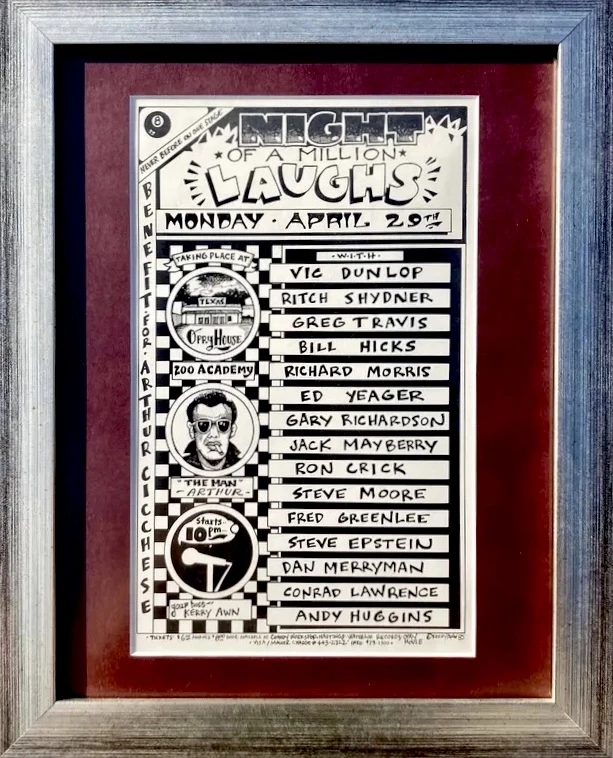 8
NEVER BEFORE ON ONE STAGE
NIGHT
OF A MILLION
LAUGHS
MONDAY · APRIL 29TH
BENEFIT · FOR · ARTHUR CICCHESE
TAKING PLACE AT
TEXAS
OPRY HOUSE
200 ACADEMY
"THE MAN"
-ARTHUR-
Starts
10pm
your host
KERRY AWN
· W·I·T·H ·
VIC DUNLOP
RITCH SHYDNER
GREG TRAVIS
BILL HICKS
RICHARD MORRIS
ED YEAGER
GARY RICHARDSON
JACK MAYBERRY
RON CRICK
STEVE MOORE
FRED GREENLEE
STEVE EPSTEIN
DAN MERRYMAN
CONRAD LAWRENCE
ANDY HUGGINS
· TICKETS $6
RECORDS
VISA/MASTER CHARGE